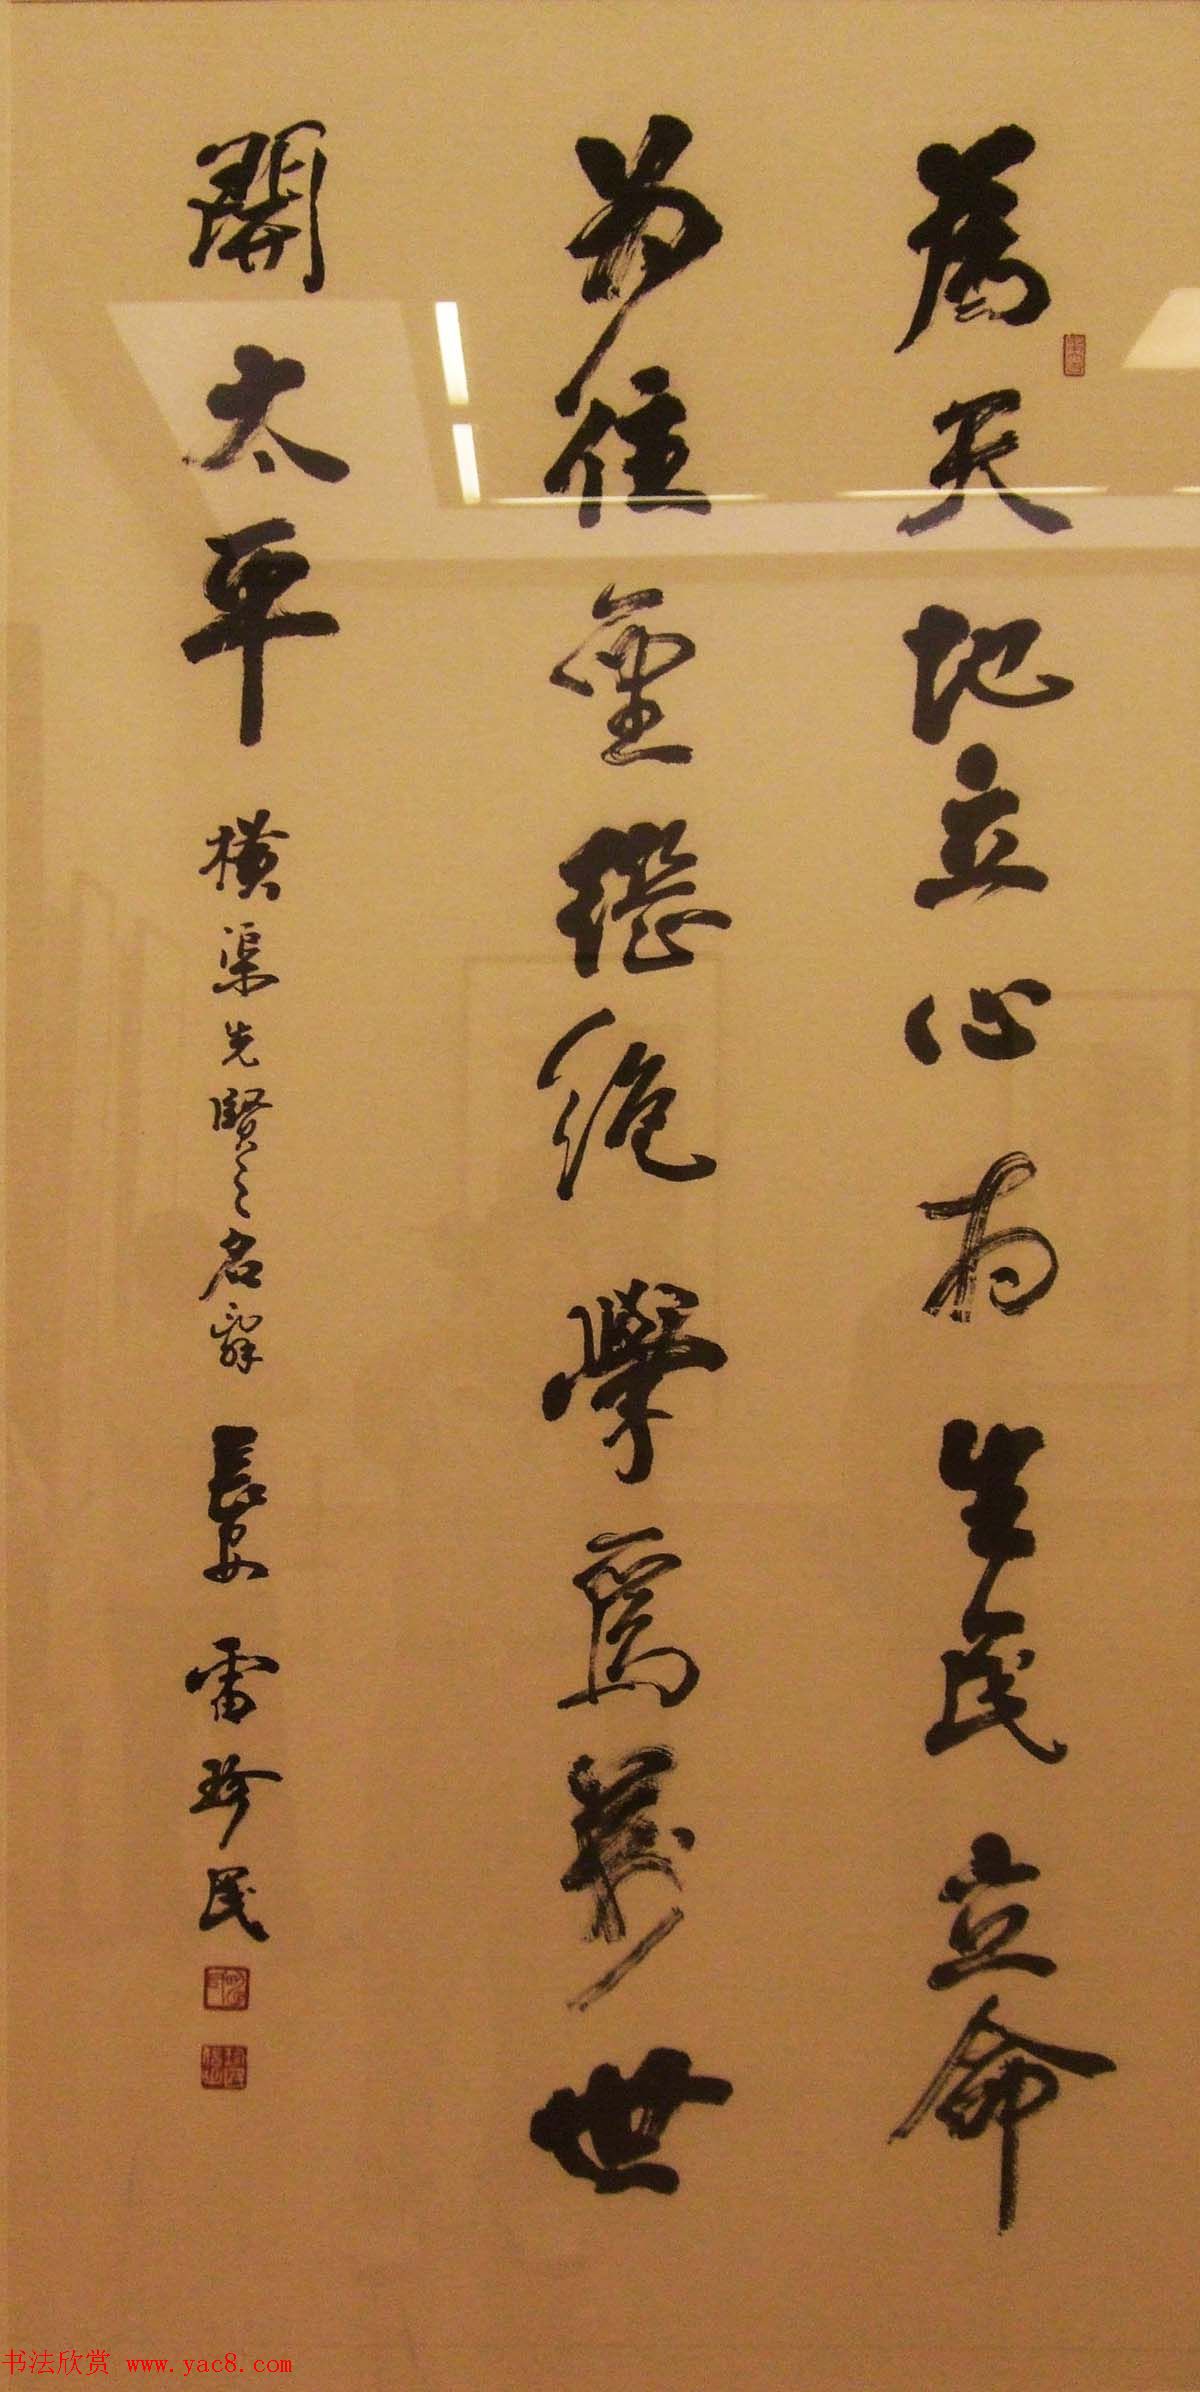 為天地立心為生民立命
為往聖繼絕學為萬世
開太平 橫渠先賢之名辭 長安 雷珍民
书法欣赏 www.yac8.com